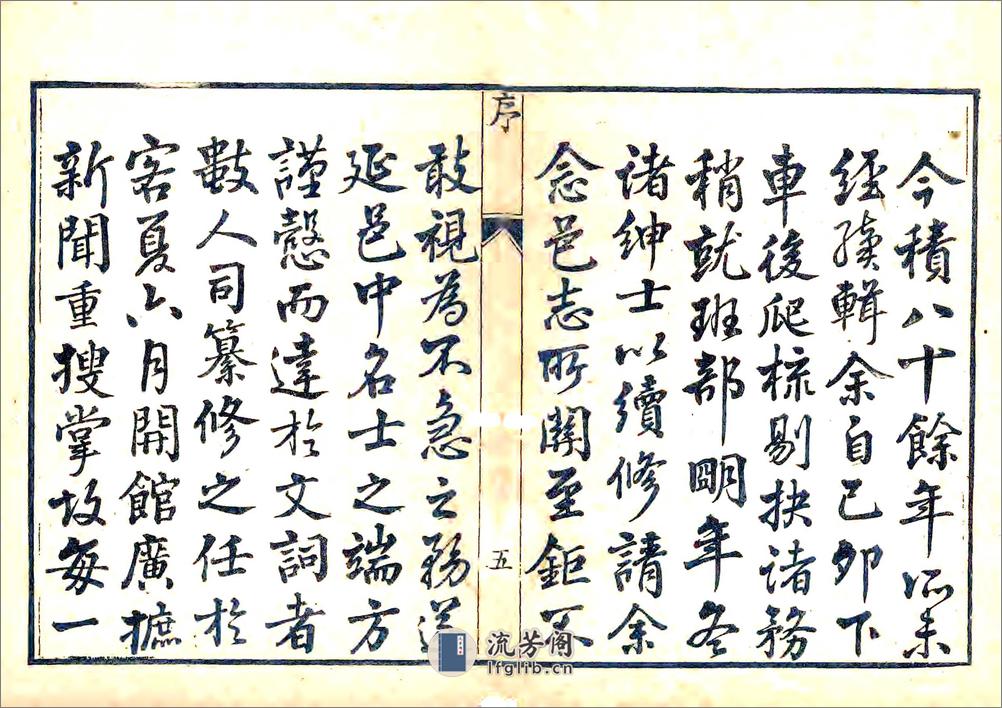 今積八十餘年所未
經續輯余自己卯下
車後爬梳剔抉諸務
稍就班部明年冬
諸紳士以續修請余
念邑志所關至鉅不
序
五
敢視為不急之務遂
延邑中名士之端方
謹愨而達於文詞者
數人司纂修之任於
客夏六月開館廣摭
新聞重搜掌故每一
流芳阁
lfglib.cn